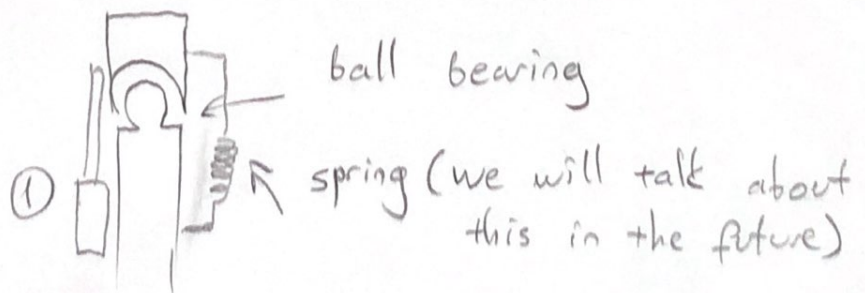 ball bearing
① spring (we will talk about
this in the future)